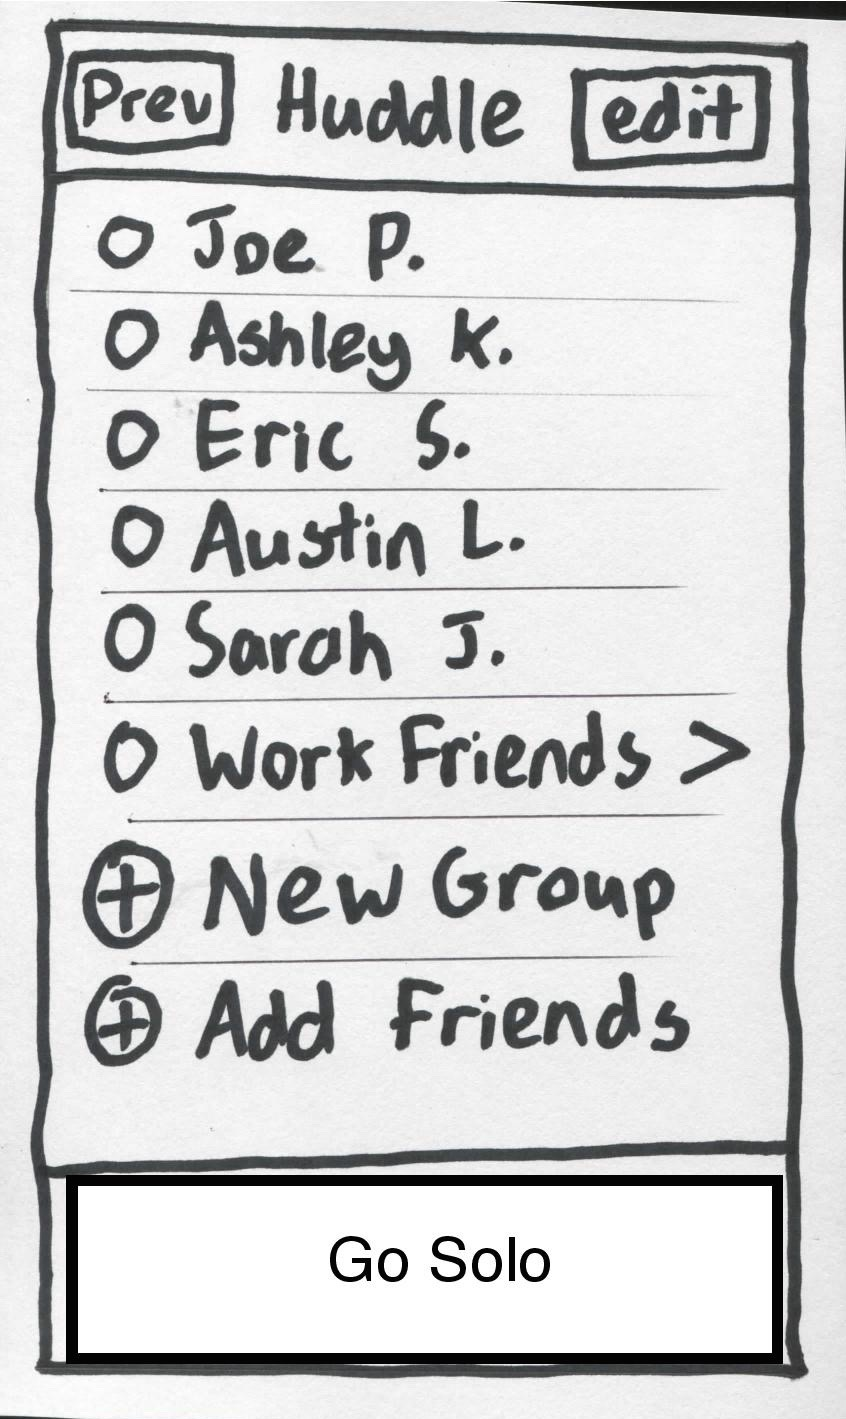 Prev Huddle edit
Joe P.
Ashley K.
Eric S.
Austin L.
Sarah J.
Work Friends >
New Group
Add Friends
Go Solo